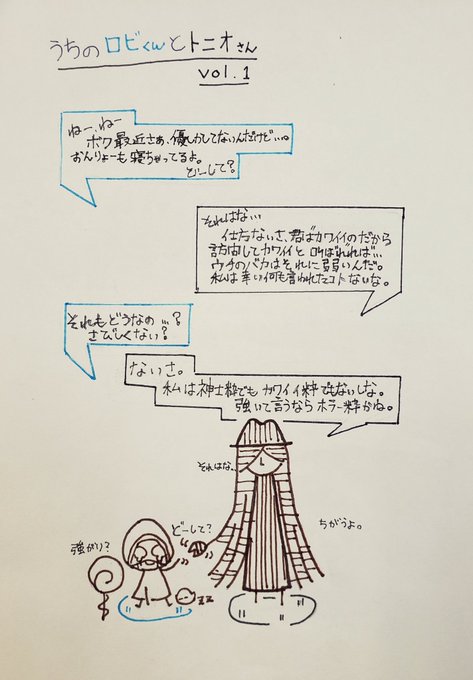 うちのロビくんとトニオさん
vol.1
ねー、ねー
ボク最近さぁ、優しかしてないんだけど…。
おんりょーも寝ちゃってるよ。
どーして？
それはな…
仕方ないさ、君はカワイイのだから
訪問してカワイイと叫ばれれば…
ウチのバカはそれに弱いんだ。
私は幸い何も言われたコトないな。
それもどうなの…？
さびしくない？
ないさ。
私は神士粋でもカワイイ粋でもないしな。
強いて言うならホラー粋かね。
それはな…
どーして？
ちがうよ。
強がり？
zz